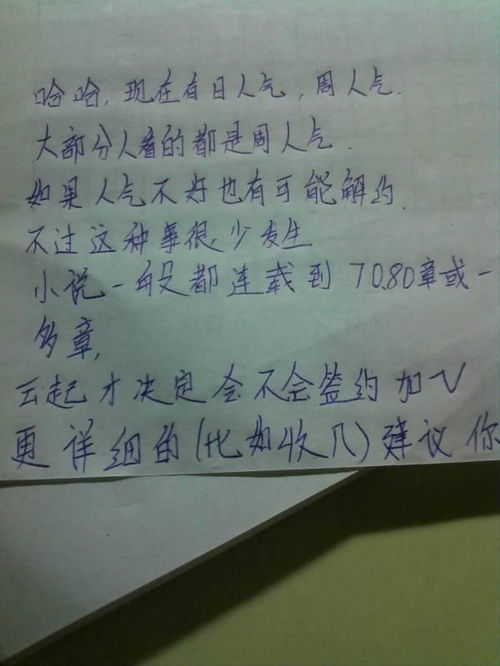 哈哈,现在有日人气,周人气.
大部分人看的都是周人气.
如果人气不好也有可能解约.
不过这种事很少发生
小说一般都连载到70.80章或一
多章,
云起才决定会不会签约加V
更详细的(比如收几)建议你